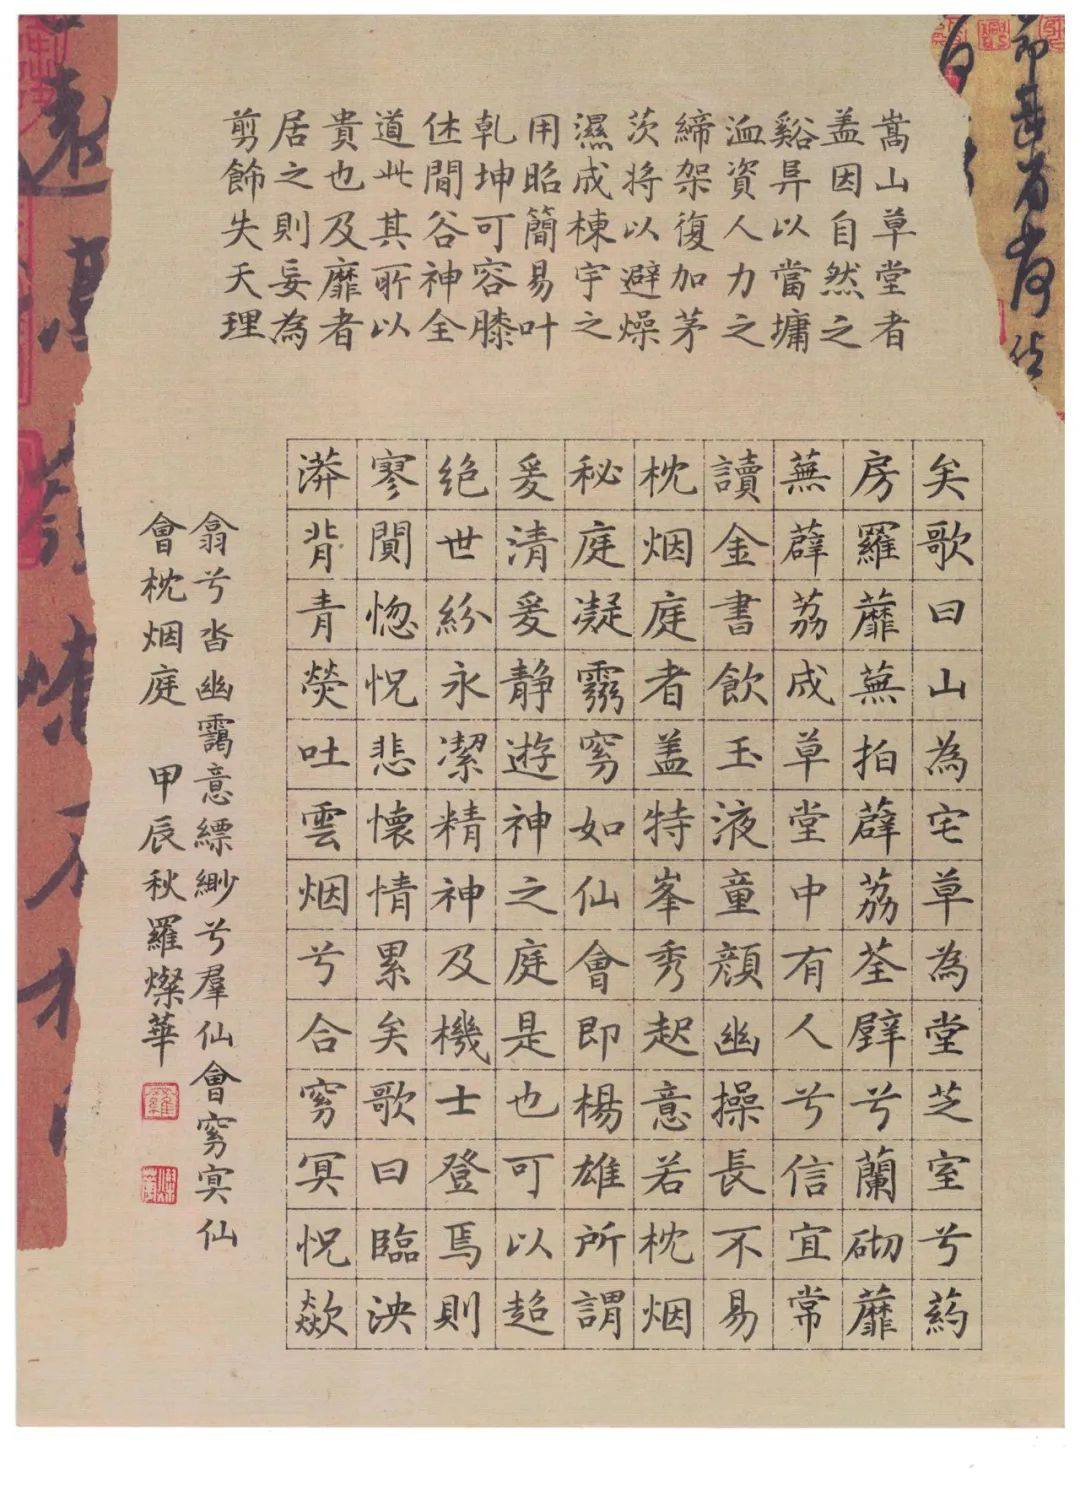 嵩山草堂者
盖因自然之
谿异以當墉
洫資人力之
締架復加茅
茨将以避燥
濕成棟宇之
用昭簡易叶
乹坤可容膝
休間谷神全
道此其所以
貴也及靡者
居之則妄為
剪飾失天理
矣歌曰山為宅草為堂芝室兮葯
房羅蘼蕪拍薜荔荃壁兮蘭砌蘼
蕪薜荔成草堂中有人兮信宜常
讀金書飲玉液童顔幽操長不易
枕烟庭者盖特峯秀起意若枕烟
秘庭凝霛窅如仙會即楊雄所謂
爰清爰静遊神之庭是也可以超
绝世紛永潔精神及機士登焉則
寥闃惚怳悲懐情累矣歌曰臨泱
漭背青熒吐雲烟兮合窅冥怳欻
翕兮沓幽靄意縹緲兮羣仙會窅冥仙
會枕烟庭 甲辰秋羅燦華